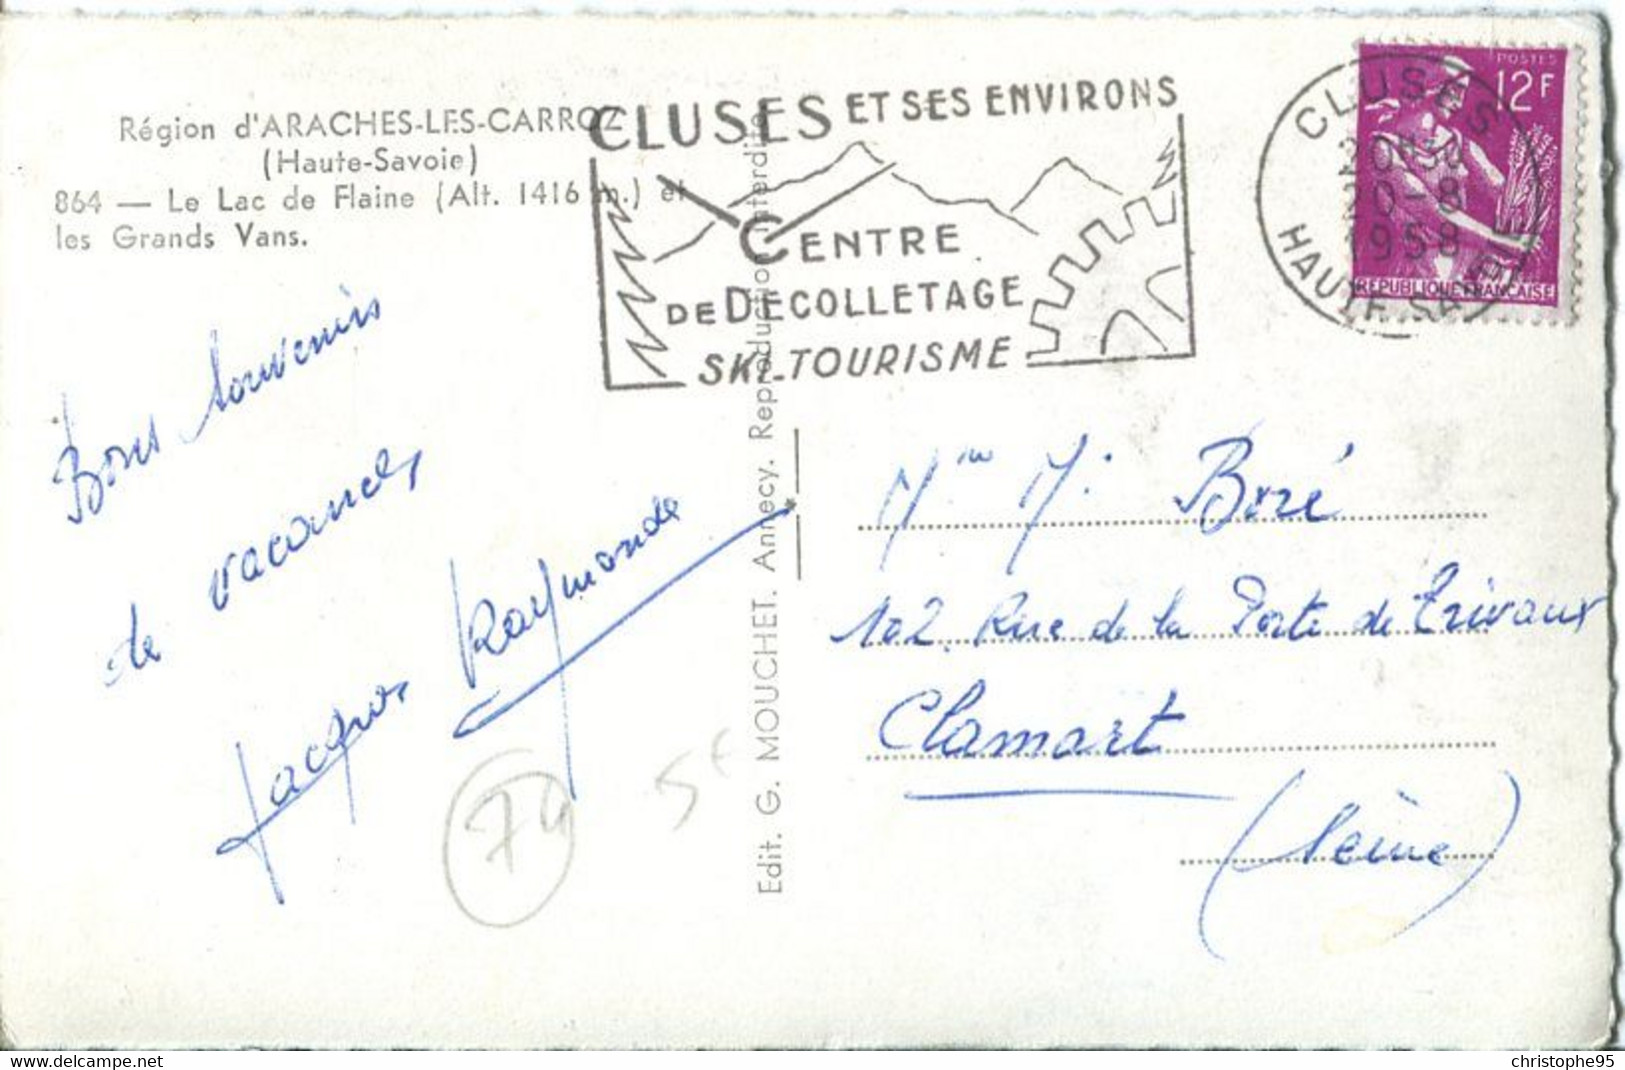 Région d'ARACHES-LES-CARROZ
(Haute-Savoie)
864 — Le Lac de Flaine (Alt. 1416 m.) et
les Grands Vans.
CLUSES ET SES ENVIRONS
CENTRE
DE DECOLLETAGE
SKI-TOURISME
CLUSES
20-8
1958
HAUTE-SAVOIE
POSTES
12F
REPUBLIQUE FRANÇAISE
Bons souvenirs
de vacances
Jacques Raymonde
74
5F
Edit. G. MOUCHET. Annecy. Reproduction interdite
Mme M. Boré
102, Rue de la Porte de Trivaux
Clamart
(Seine)
delcampe.net
christophe95